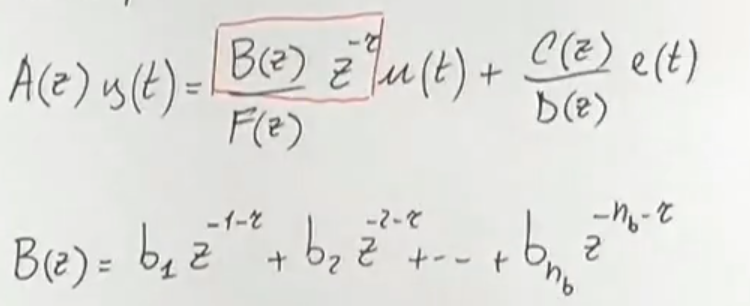 A(z) y(t) = B(z)/F(z) z^{-τ} u(t) + C(z)/D(z) e(t)
B(z) = b_1 z^{-1-τ} + b_2 z^{-2-τ} + -- + b_{n_b} z^{-n_b-τ}